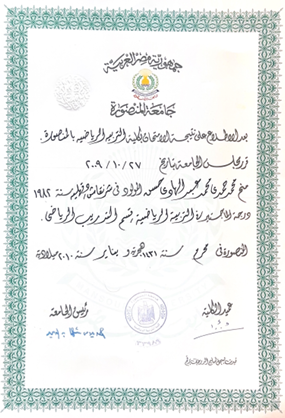 جمهورية مصر العربية
جامعة المنصورة
بعد الاطلاع على نتيجة الامتحان بكلية التربية الرياضية بالمنصورة.
قرر مجلس الجامعة بتاريخ ٢٧ / ١٠ / ٢٠٠٩
منح محمد المولود في سنة ١٩٨٢
درجة الماجستير في التربية الرياضية بقسم التدريب الرياضي.
المنصورة في محرم سنة ١٤٣١ هجرية و يناير سنة ٢٠١٠ ميلادية
عميد الكلية
رئيس الجامعة